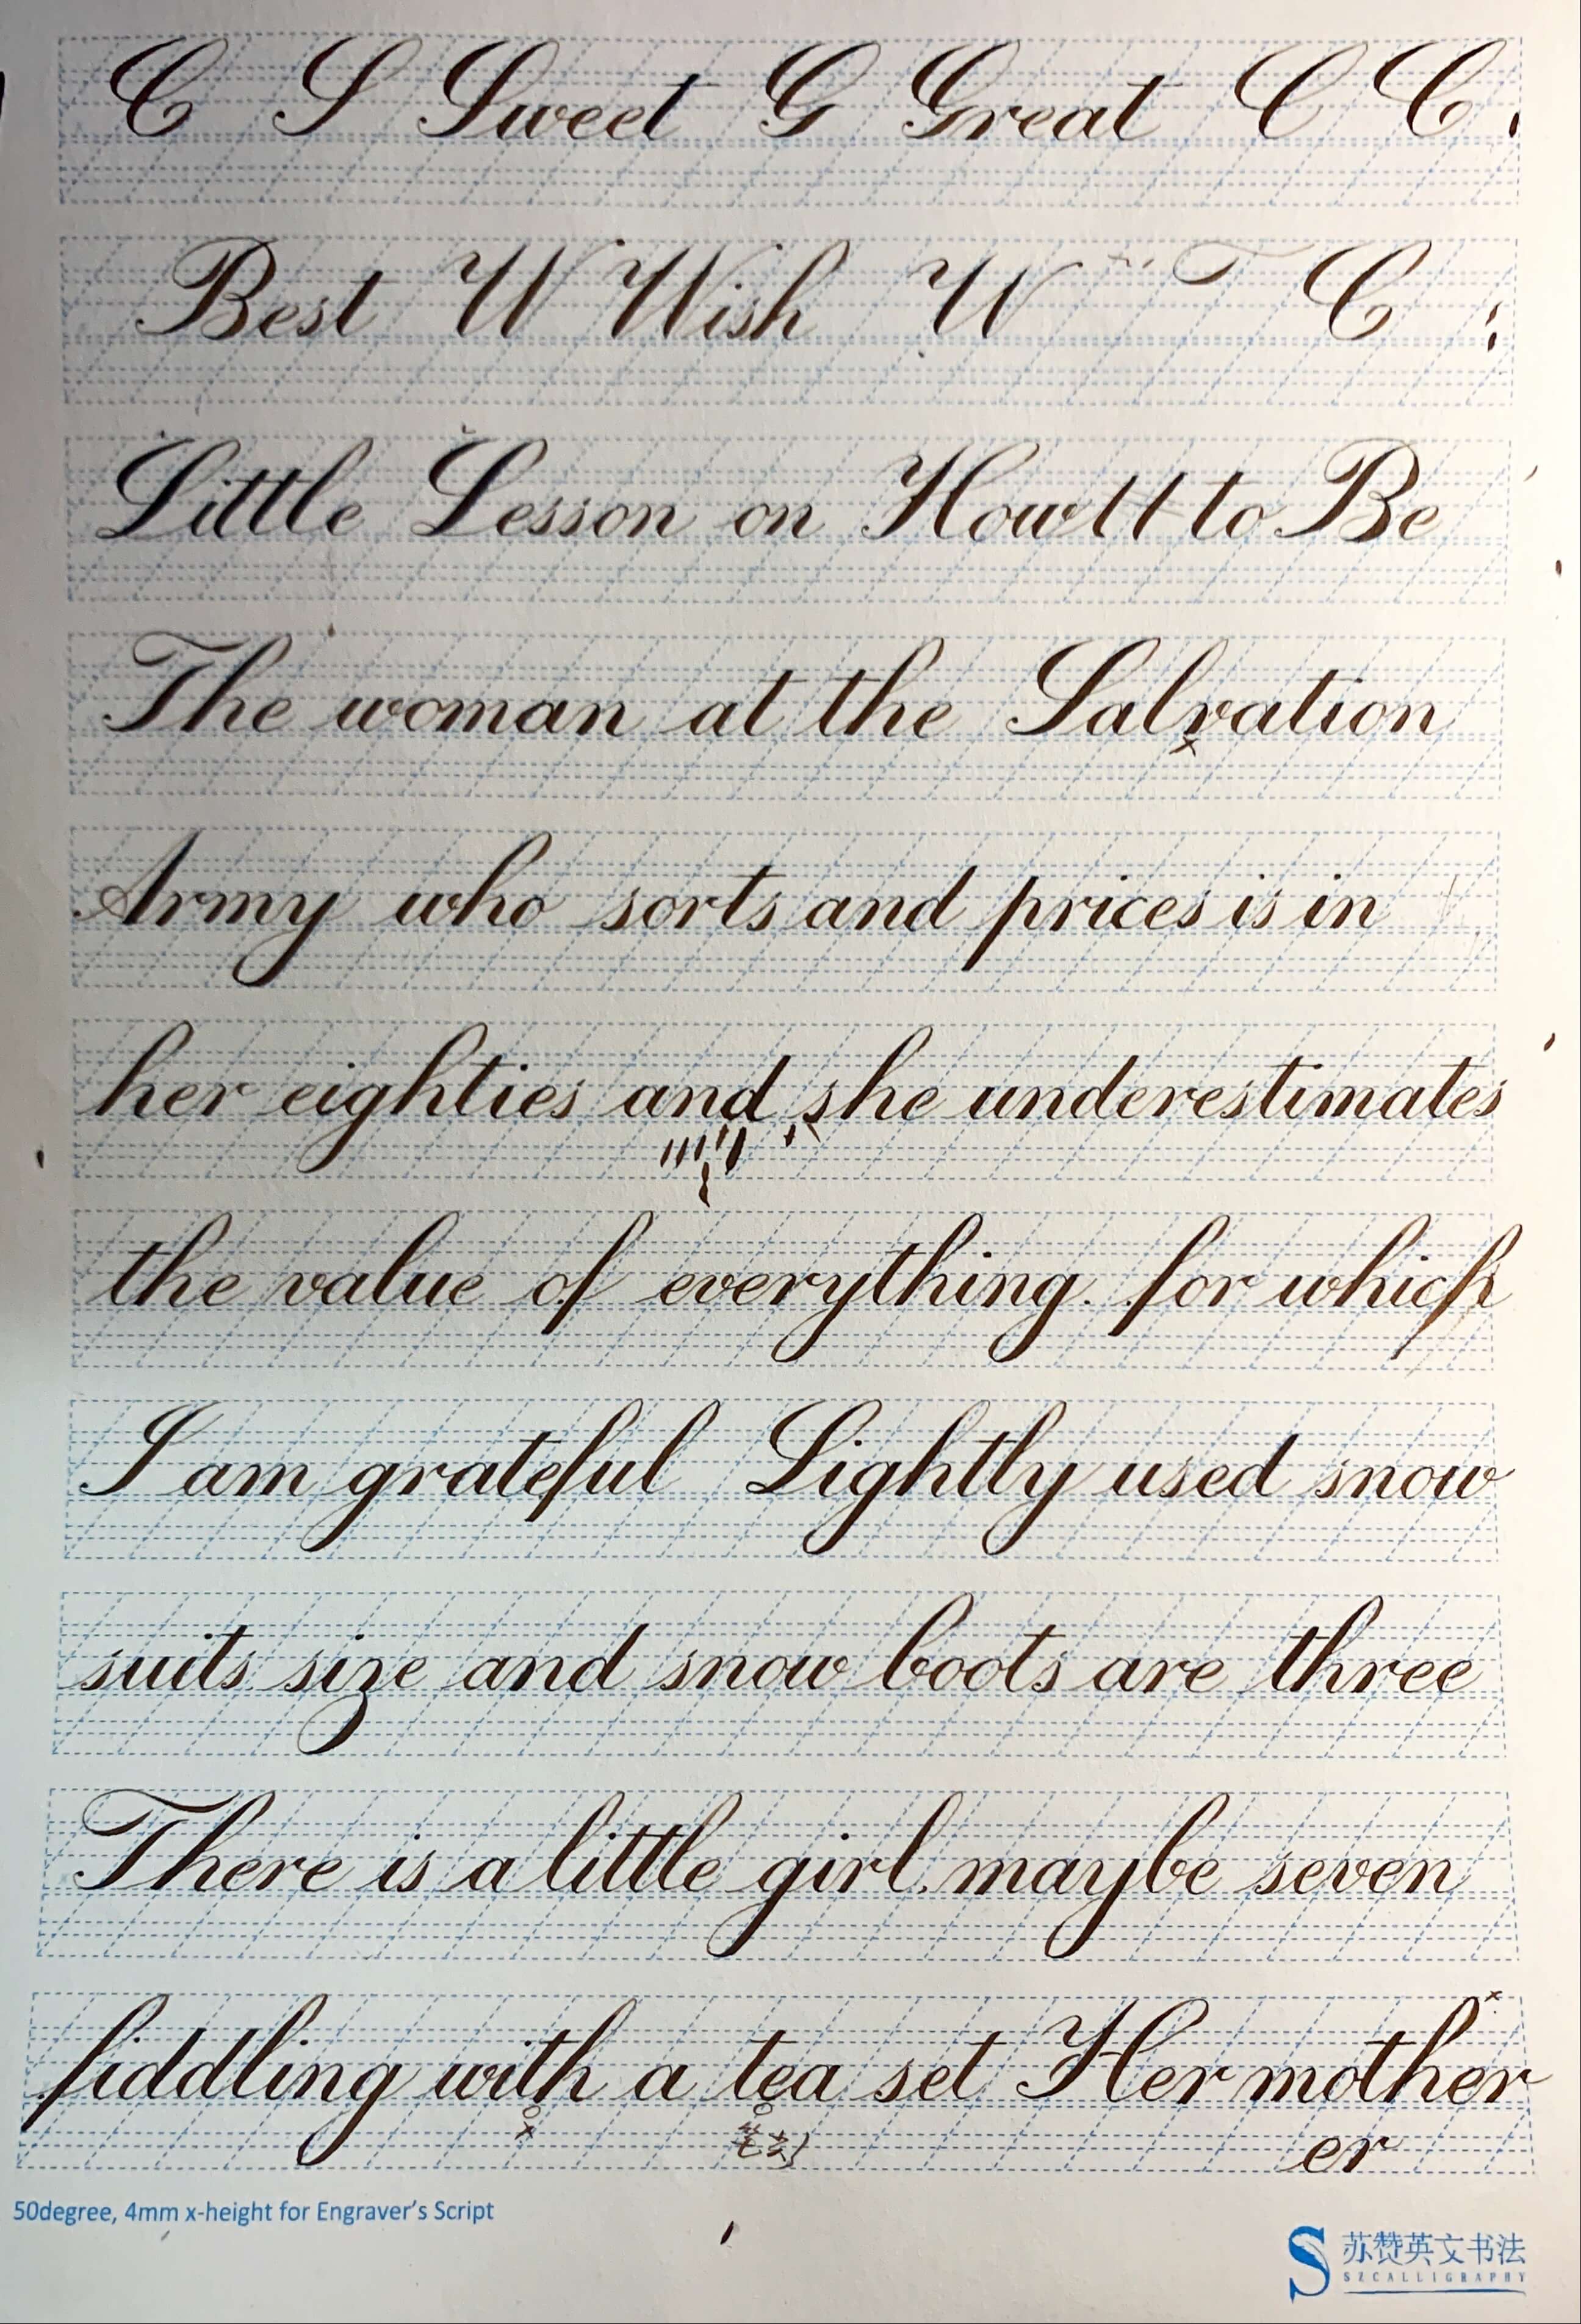 C S Sweet G Great C C
Best W Wish W C
Little Lesson on How to Be
The woman at the Salvation
Army who sorts and prices is in
her eighties and she underestimates
the value of everything. for which
I am grateful Lightly used snow
suits size and snow boots are three
There is a little girl, maybe seven
fiddling with a tea set Her mother
er
50degree, 4mm x-height for Engraver's Script
苏赞英文书法
SZCALLIGRAPHY